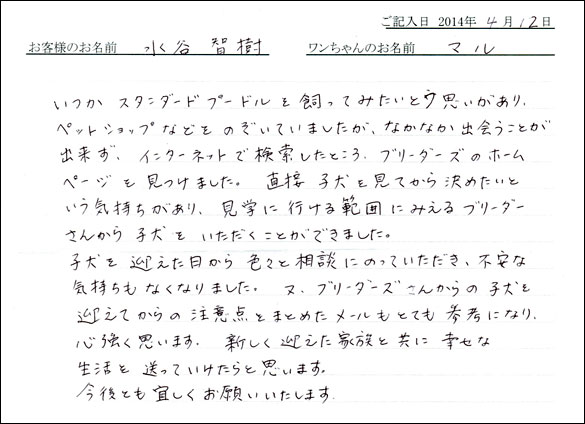 ご記入日 2014年 4月12日
お客様のお名前 水谷 智樹 ワンちゃんのお名前 マル
いつか スタンダードプードル を 飼ってみたいという思いがあり、
ペットショップなどを のぞいていましたが、なかなか 出会うことが
出来ず、インターネットで検索したところ、ブリーダーズのホーム
ページを見つけました。直接 子犬を見てから決めたいと
いう気持ちがあり、見学に行ける範囲にみえるブリーダー
さんから子犬を いただくことができました。
子犬を迎えた日から色々と相談にのっていただき、不安な
気持ちもなくなりました。又、ブリーダーズさんからの子犬を
迎えてからの注意点をまとめたメールもとても参考になり、
心強く思います。新しく迎えた家族と共に幸せな
生活を送っていけたらと思います。
今後とも宜しくお願いいたします